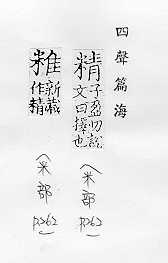 四聲篇海
精子盈切說文曰擇也
〈米部 P262〉
粣新藏作精
〈米部 P262〉